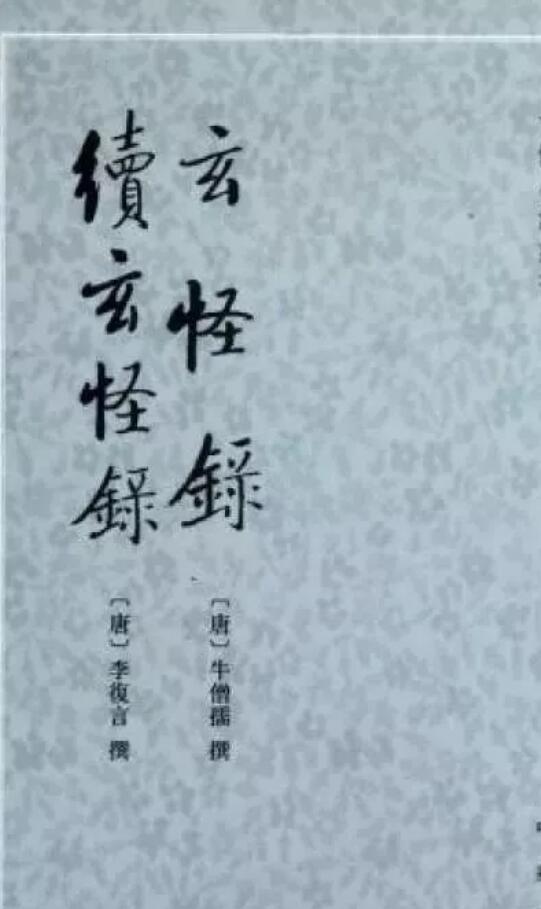 玄怪錄
〔唐〕牛僧孺 撰
續玄怪錄
〔唐〕李復言 撰